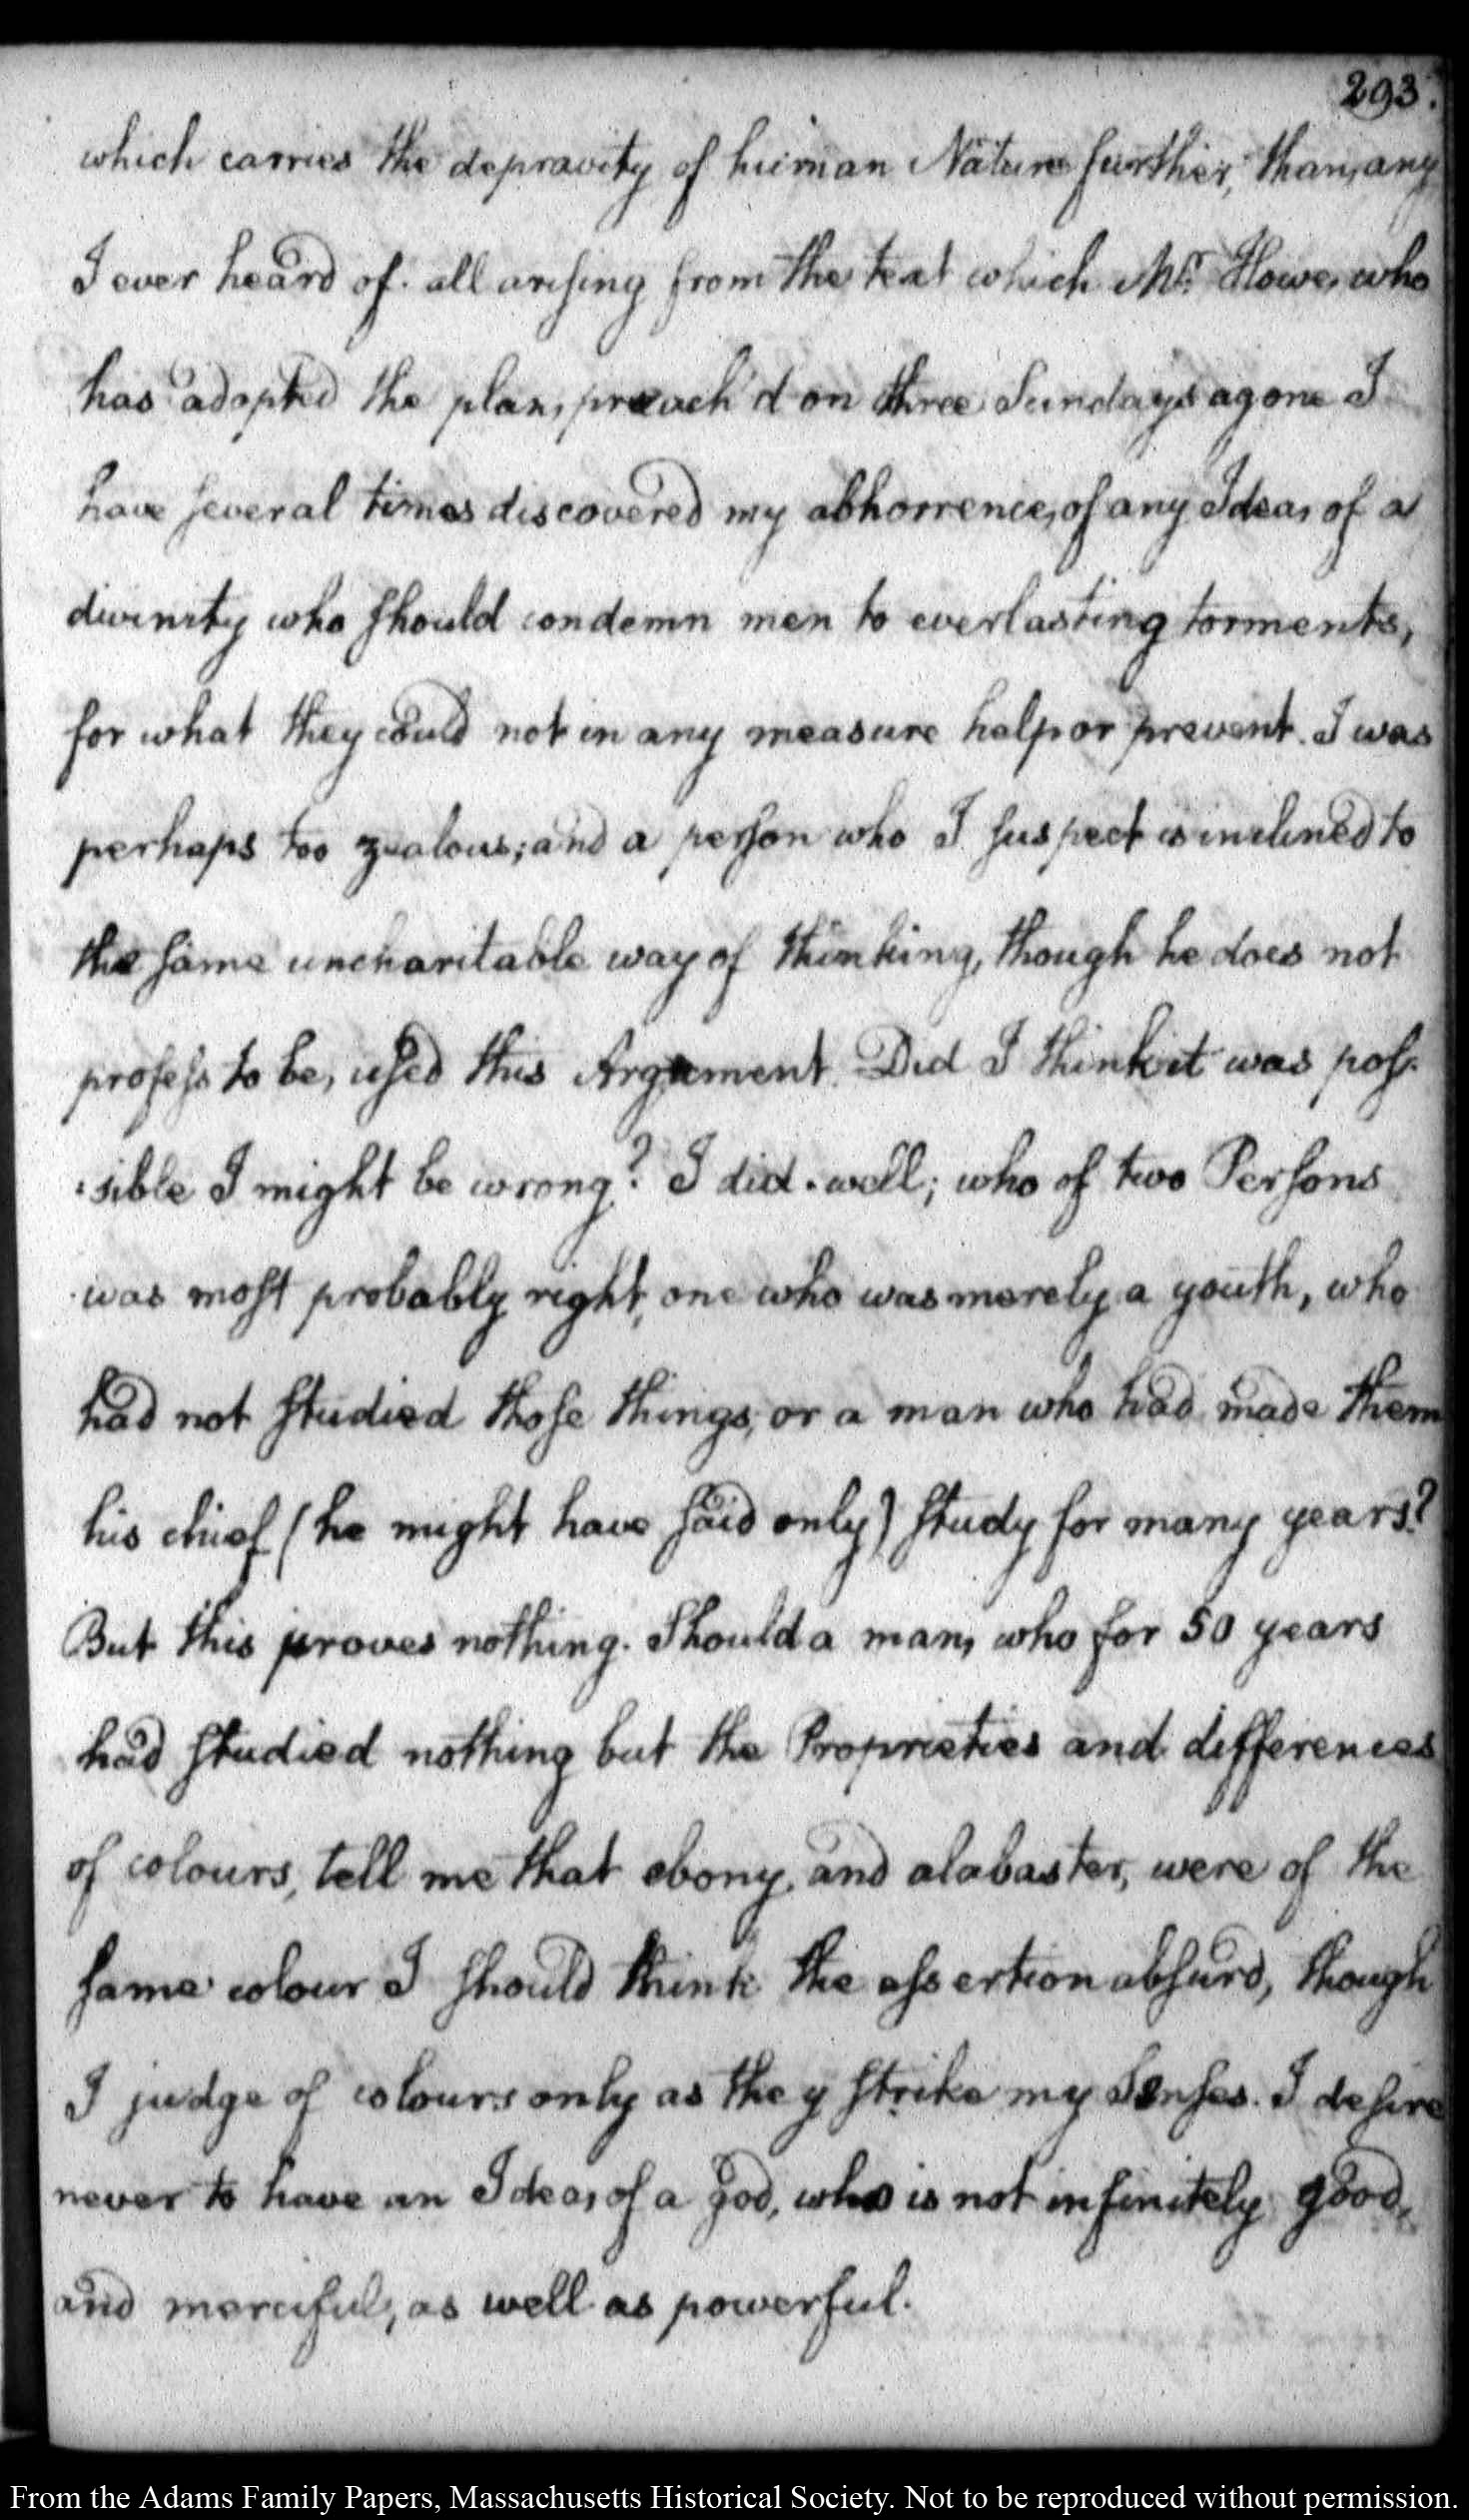 293.
which carries the depravity of human Nature further, than, any
I ever heard of. all arising from the text which Mr. Howe, who
has adopted the plan, preach'd on three Sundays agone I
have several times discovered my abhorrence, of any Idea, of a
divinity who should condemn men to everlasting torments,
for what they could not in any measure help or prevent. I was
perhaps too zealous; and a person who I suspect is inclined to
the same uncharitable way of thinking, though he does not
profess to be, used this Argument. Did I think it was pos-
-sible I might be wrong? I did. well; who of two Persons
was most probably right, one who was merely a youth, who
had not studied those things, or a man who had made them
his chief (he might have said only) study for many years?
But this proves nothing. Should a man, who for 50 years
had studied nothing but the Proprieties and differences
of colours, tell me that ebony, and alabaster, were of the
same colour I should think the assertion absurd, though
I judge of colours only as they strike my Senses. I desire
never to have an Idea, of a god, who is not infinitely good,
and merciful, as well as powerful.
From the Adams Family Papers, Massachusetts Historical Society. Not to be reproduced without permission.